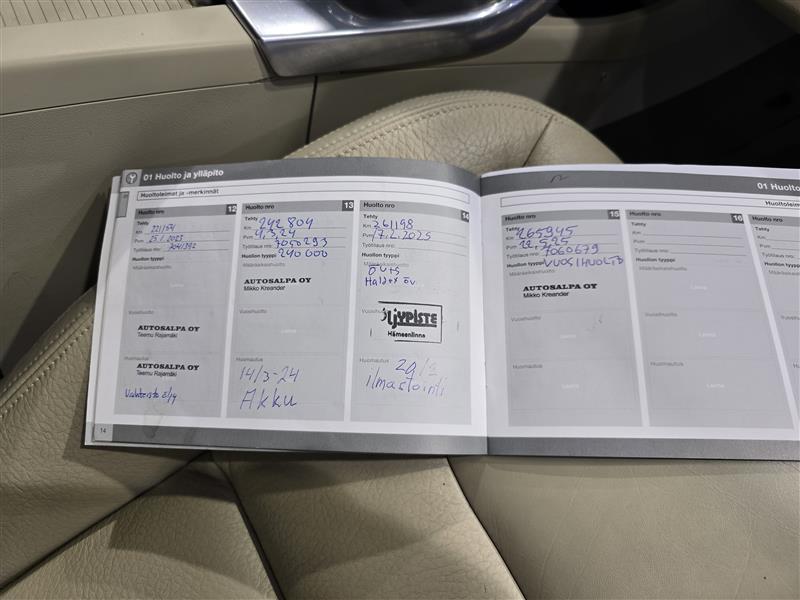 01 Huolto ja ylläpito
Huoltoleimat ja -merkinnät
Huolto nro 12
Tehty
Km 221154
Pvm 25.1.2023
Työtilaus nro:
Huollon tyyppi
Määräaikaishuolto
Leima
Vuosihuolto
AUTOSALPA OY
Teemu Rajamäki
Huomautus
AUTOSALPA OY
Teemu Rajamäki
Huolto nro 13
Tehty
Km 242 804
Pvm 4.3.24
Työtilaus nro: 7050293
Huollon tyyppi 240 000
Määräaikaishuolto
AUTOSALPA OY
Mikko Kreander
Vuosihuolto
Leima
Huomautus
14/3-24
Akku
Huolto nro 14
Tehty
Km 261198
Pvm 17.2.2025
Työtilaus nro:
Huollon tyyppi
Määräaikaishuolto
Ö v+s
Haldex öv
Vuosihuolto
ÖljYPISTE
Hämeenlinna
Huomautus
ilmastointi
14
01 Huolto
Huolto nro 15
Tehty
Km 265945
Pvm 12.5.25
Työtilaus nro: 7060679
Huollon tyyppi VUOSIHUOLTO
Määräaikaishuolto
AUTOSALPA OY
Mikko Kreander
Vuosihuolto
Leima
Huomautus
Leima
Huolto nro 16
Tehty
Km
Pvm
Työtilaus nro:
Huollon tyyppi
Määräaikaishuolto
Leima
Vuosihuolto
Leima
Huomautus
Leima
Huolto nro
Tehty
Km
Pvm